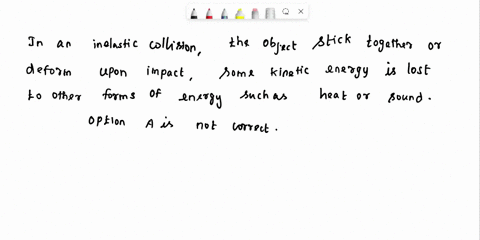 In an inelastic collision, the object stick together or
deform upon impact, some kinetic energy is lost
to other forms of energy such as heat or sound.
option A is not correct.